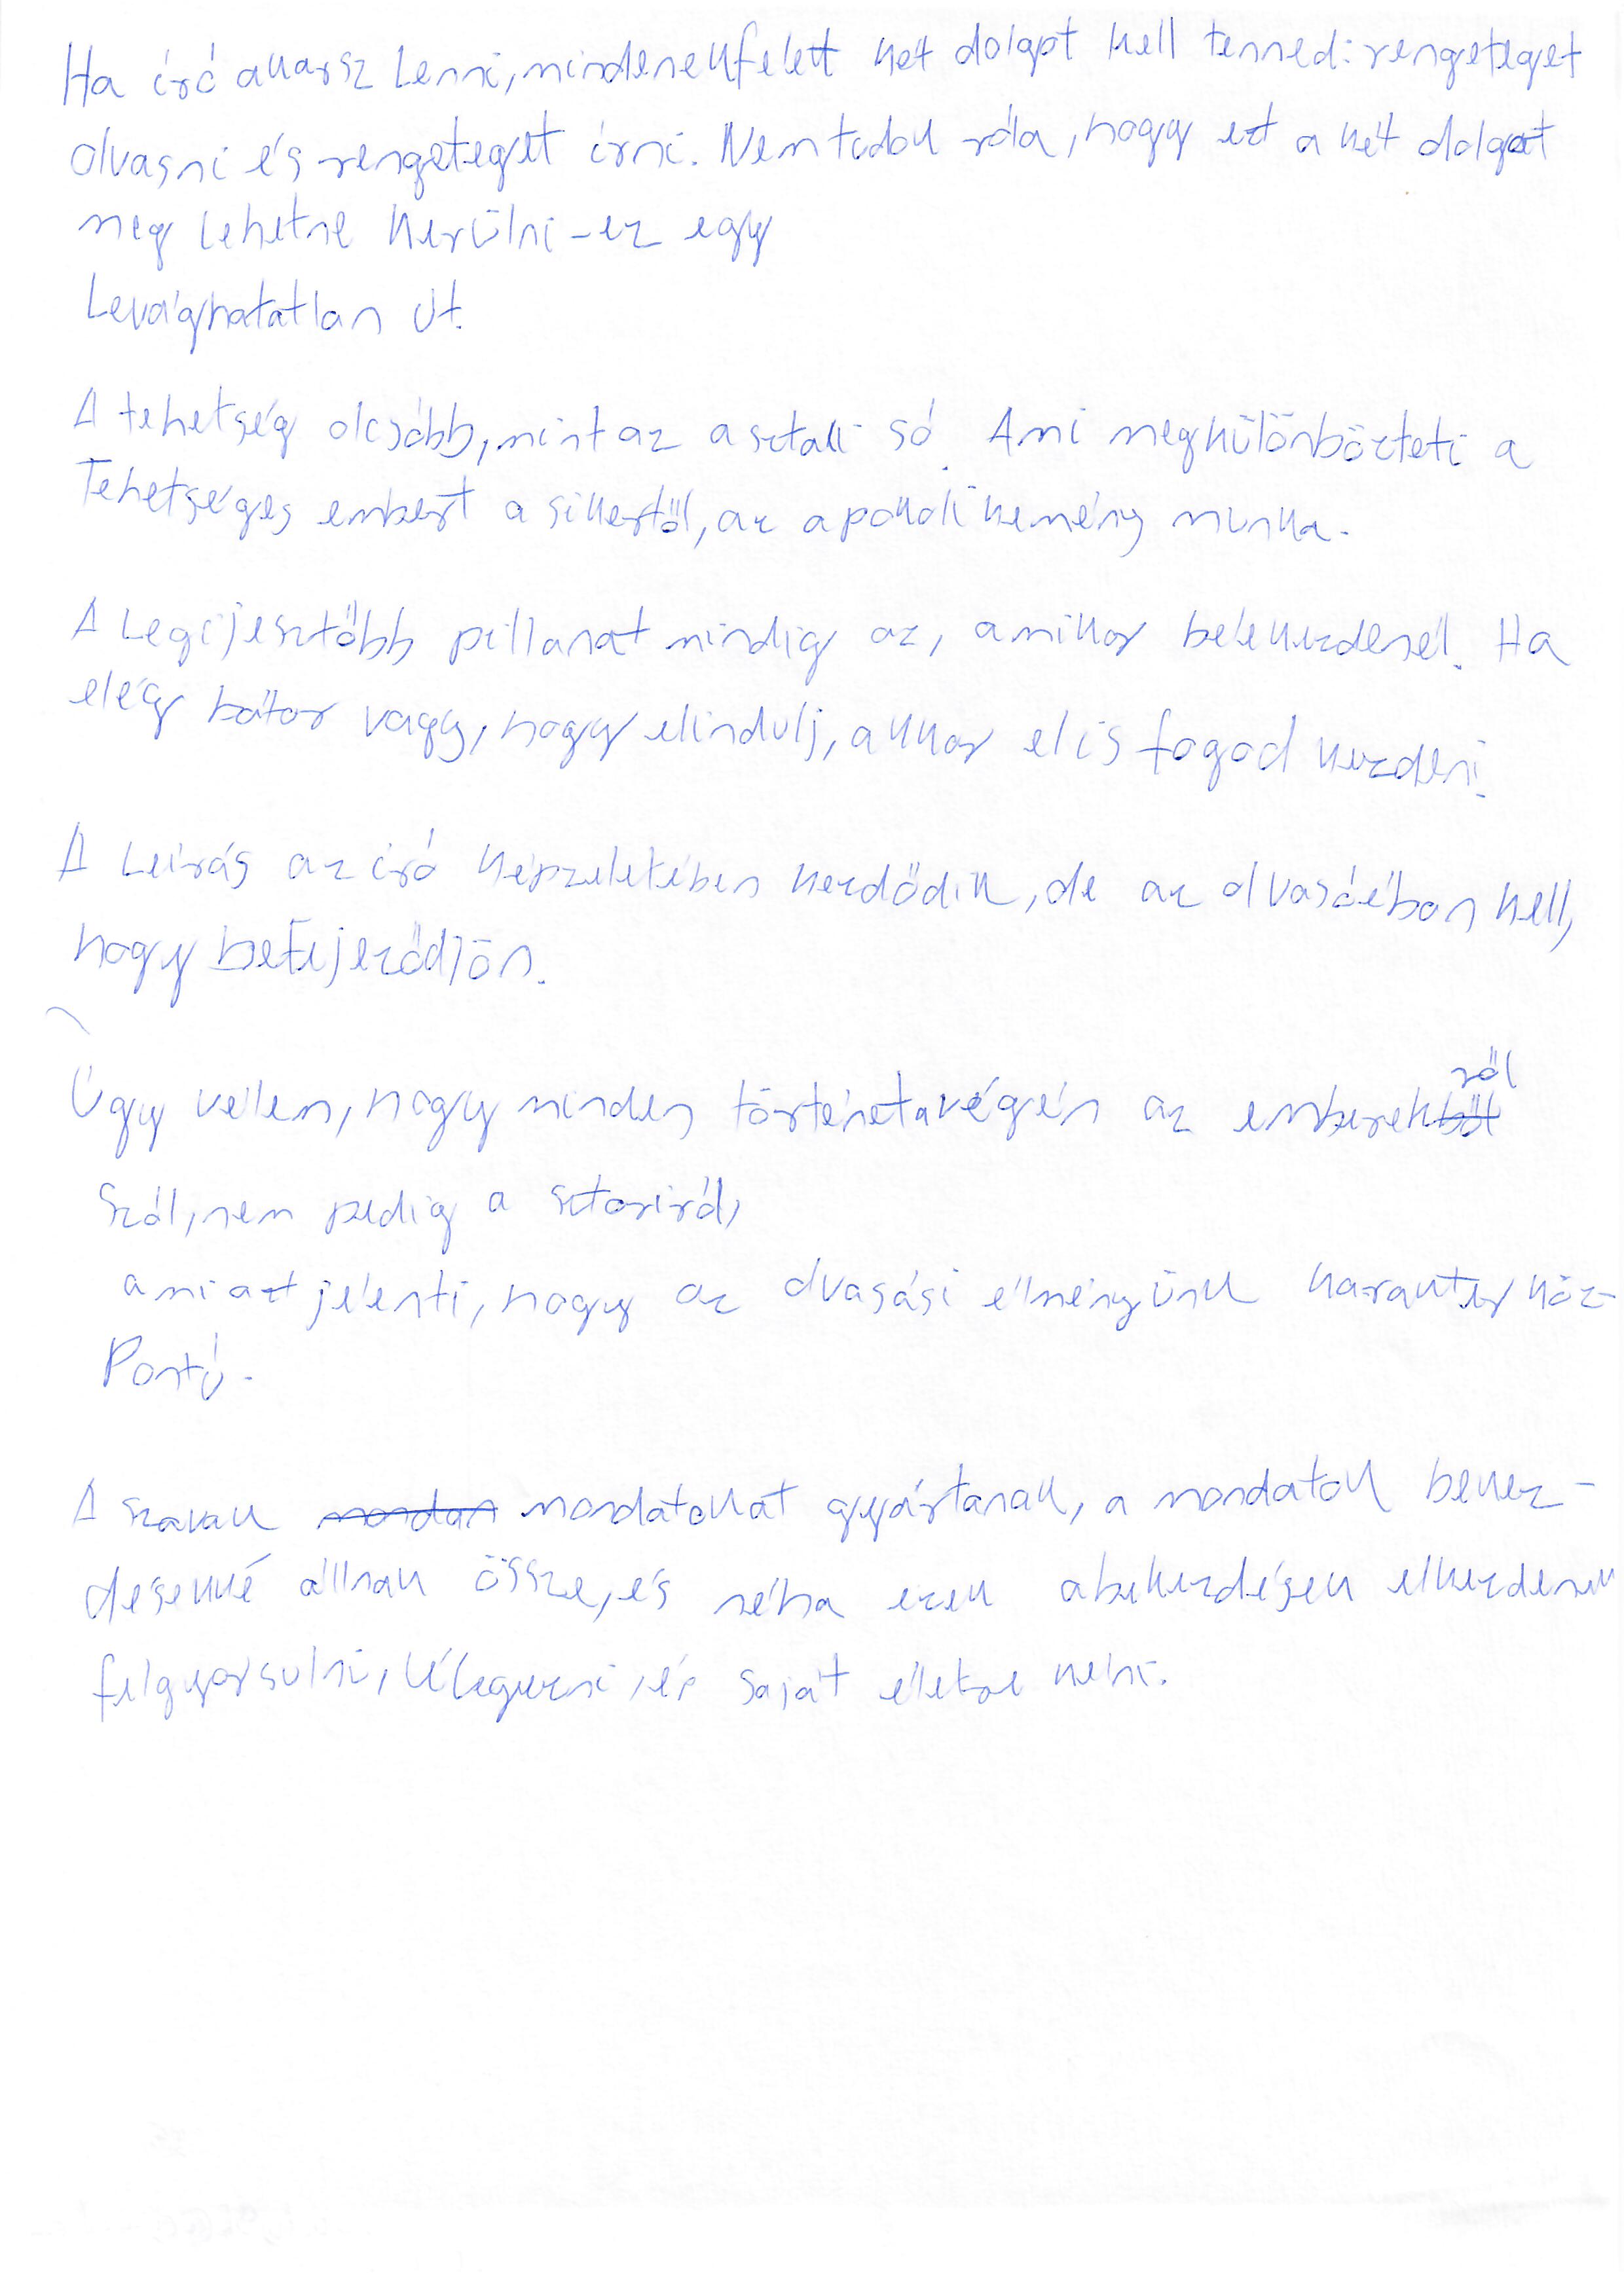 Ha író akarsz lenni, mindenekfelett két dolgot kell tenned: rengeteget
olvasni és rengeteget írni. Nem tudok róla, hogy ezt a két dolgot
meg lehetne kerülni - ez egy
Levághatatlan út.
A tehetség olcsóbb, mint az asztali só. Ami megkülönbözteti a
Tehetséges embert a sikertől, az a pokoli kemény munka.
A Legijesztőbb pillanat mindig az, amikor belekezdenél. Ha
elég bátor vagy, hogy elindulj, akkor el is fogod kezdeni.
A Leírás az író képzeletében kezdődik, de az olvasóéban kell,
hogy befejeződjön.
Úgy vélem, hogy minden történet a végén az emberekről
szól, nem pedig a sztoriról,
ami azt jelenti, hogy az olvasási élményünk karakter köz-
Pontú.
A szavak mondatokat gyártanak, a mondatok bekez-
désekké állnak össze, és néha ezek a bekezdések elkezdenek
felgyorsulni, lélegezni, és saját életre kelni.